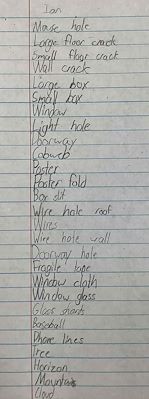 Ian
Mouse hole
Large floor crack
Small floor crack
Wall crack
Large box
Small box
Window
Light hole
Doorway
Cobweb
Poster
Poster fold
Box slit
Wire hole roof
Wires
Wire hole wall
Doorway hole
Fragile tape
Window cloth
Window glass
Glass shards
Baseball
Phone lines
Tree
Horizon
Mountains
Cloud